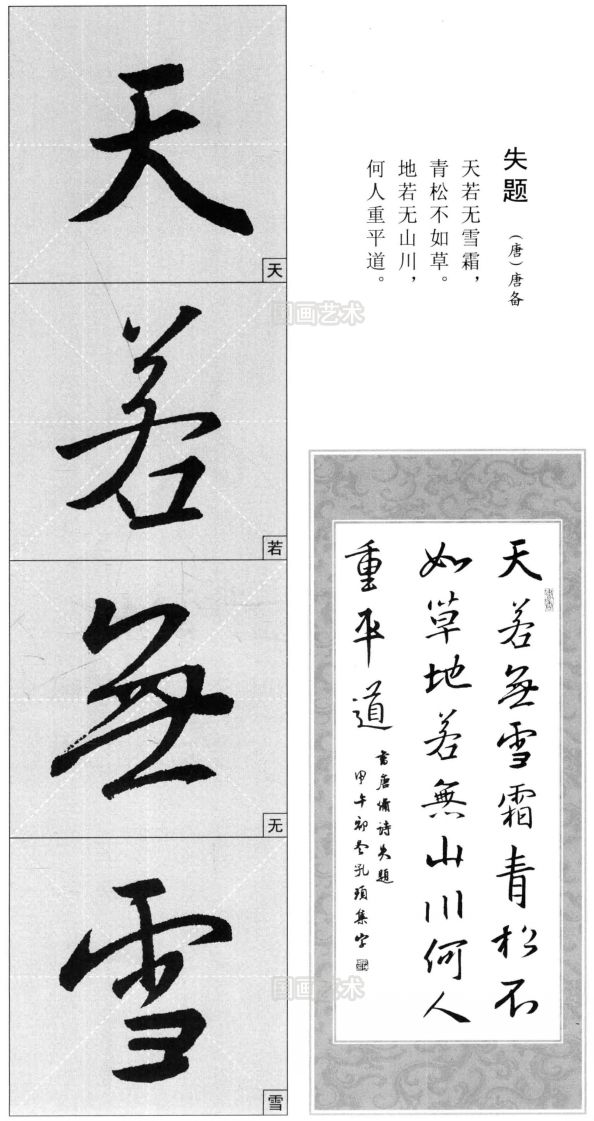 失题
（唐）唐备
天若无雪霜，
青松不如草。
地若无山川，
何人重平道。
天
天
若
若
無
无
雪
雪
天若無雪霜青松不
如草地若無山川何人
重平道
書唐備诗失題
甲午初冬孔頊集字
国画艺术
国画艺术